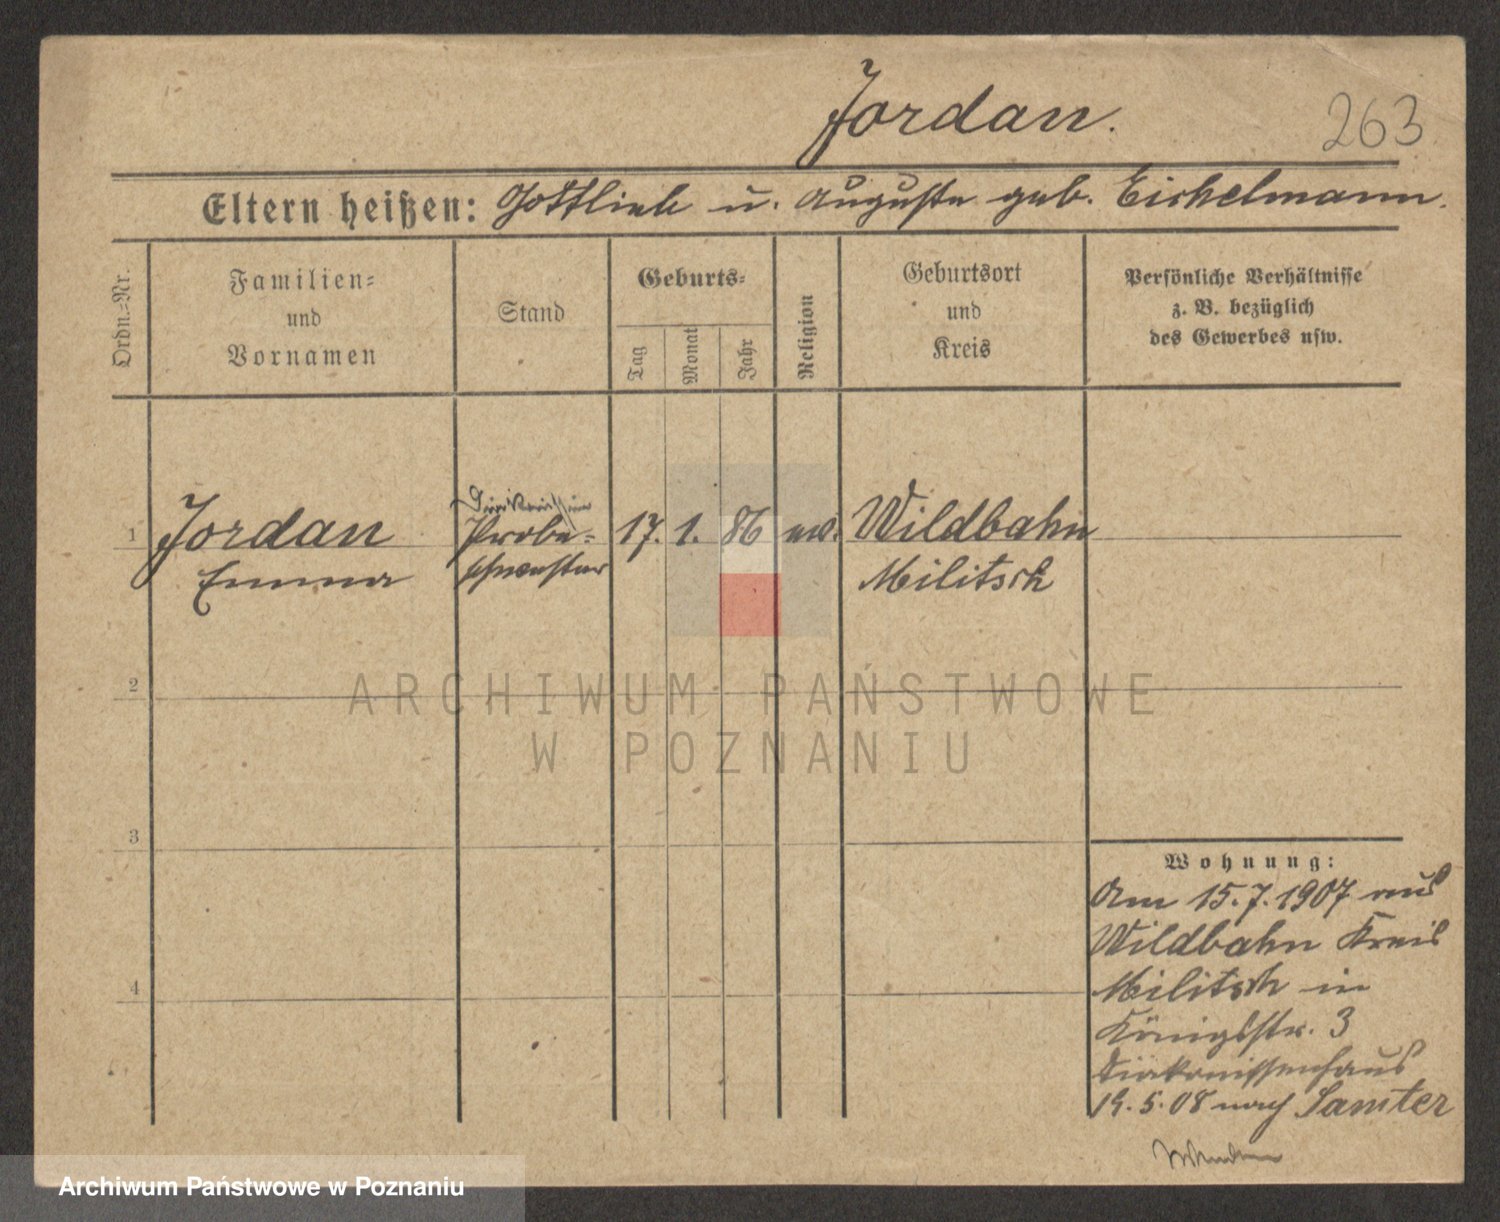 Jordan.
263
Eltern heißen: Gottlieb u. Auguste geb. Eickelmann.
Ordn.-Nr.
Familien-
und
Vornamen
Stand
Geburts-
Tag
Monat
Jahr
Religion
Geburtsort
und
Kreis
Persönliche Verhältnisse
z. B. bezüglich
des Gewerbes usw.
Diakonissin
1 Jordan Probe- 17. 1. 86 ev. Wildbahn
Emma schwester Militsch
ARCHIWUM PAŃSTWOWE
W POZNANIU
2
3
4
Wohnung:
Am 15.7.1907 aus
Wildbahn Kreis
Militsch in
Königsstr. 3
Diakonissenhaus
19.5.08 nach Samter
Archiwum Państwowe w Poznaniu